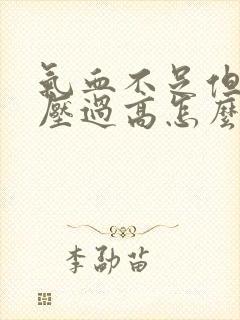 氣血不足但
壓過高怎麼
李勐苗